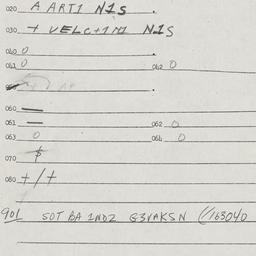 020 A ART1 N1S .
030 + VELC+1M1 N1S
040 0 .
041 0 042 0
060 —
051 — 052 0
063 0 064 0
070 $
080 +/+
901 SOT BA 1ND2 G3VAKSN (/163040